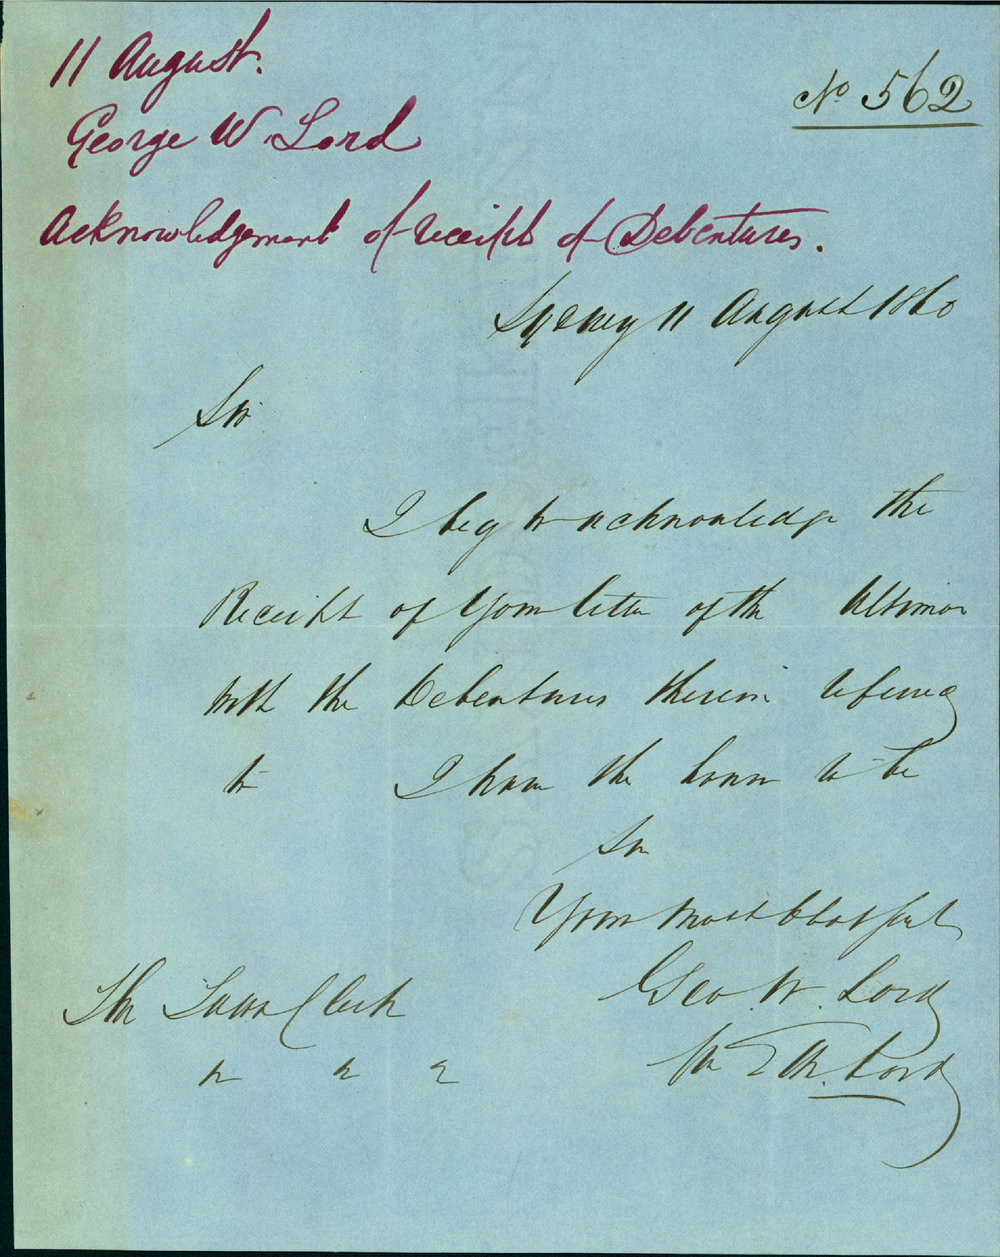 11 August.
No 562
George W. Lord
Acknowledgement of receipt of Debentures.
Sydney 11 August 1860
Sir
I beg to acknowledge the
Receipt of Your letter of the Ultimo
with the Debentures therein referred
to I have the honor to be
Sir
Your most Obdt Servt
Geo. W. Lord
The Town Clerk
Lord